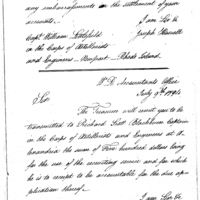 any embarrassments in the settlement of your
accounts.
I am Sir &c
Capt. William Littlefield
Joseph Howell
in the Corps of Artillerists
and Engineers - Newport - Rhode Island.
W. D. Accountants Office
July 9th 1794
Sir
The Treasurer will send you to be
transmitted to Richard Scott Blackburn Captain
in the Corps of Artillerists and Engineers at
Alexandria the sum of Five hundred dollars being
for the use of the recruiting service and for which
he is to receipt to be accountable for the due ap-
plication thereof.
I am Sir &c